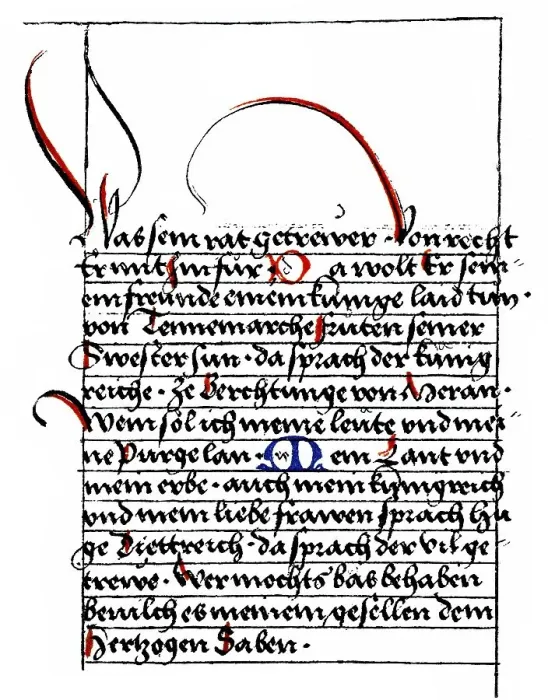 Was sein rat getrewer · Von recht
Er im für · Da wolt Er sein-
em freunde einem künige laid tun ·
von Tennemarche Fruten seiner
Swester sun · da sprach der künig
reiche · Ze Berchtunge von Meran ·
Wem sol ich meine leute vnd mei-
ne Purge lan · Mein Lant vnd
mein erbe · auch mein künigreich
vnd mein liebe frawen sprach Hu
ge Diettreich · da sprach der vil ge
trewe · Wer mochts bas behaben
beuilch es meinem gesellen dem
Hertzogen Saben ·